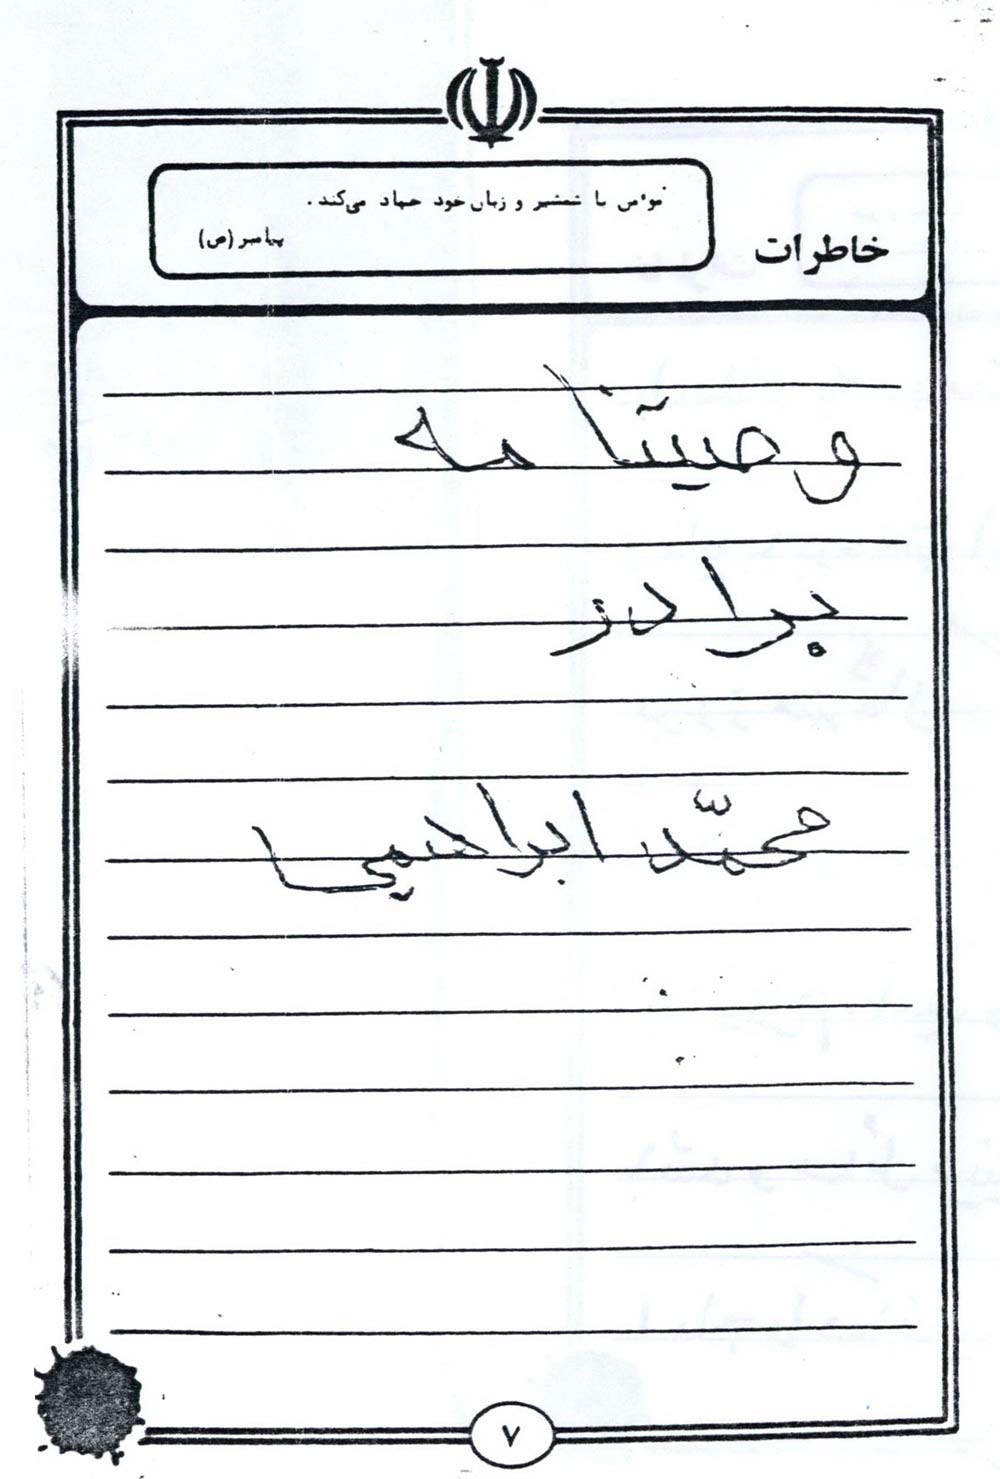 مومن با شمشیر و زبان خود جهاد می‌کند.
پیامبر (ص)
خاطرات
وصیتنامه
برادر
محمّد ابراهیمی
۷